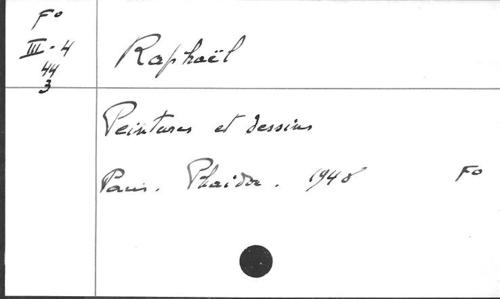 Fo
III-4
44
3
Raphaël
Peintures et dessins
Paris. Phaidon. 1948
Fo